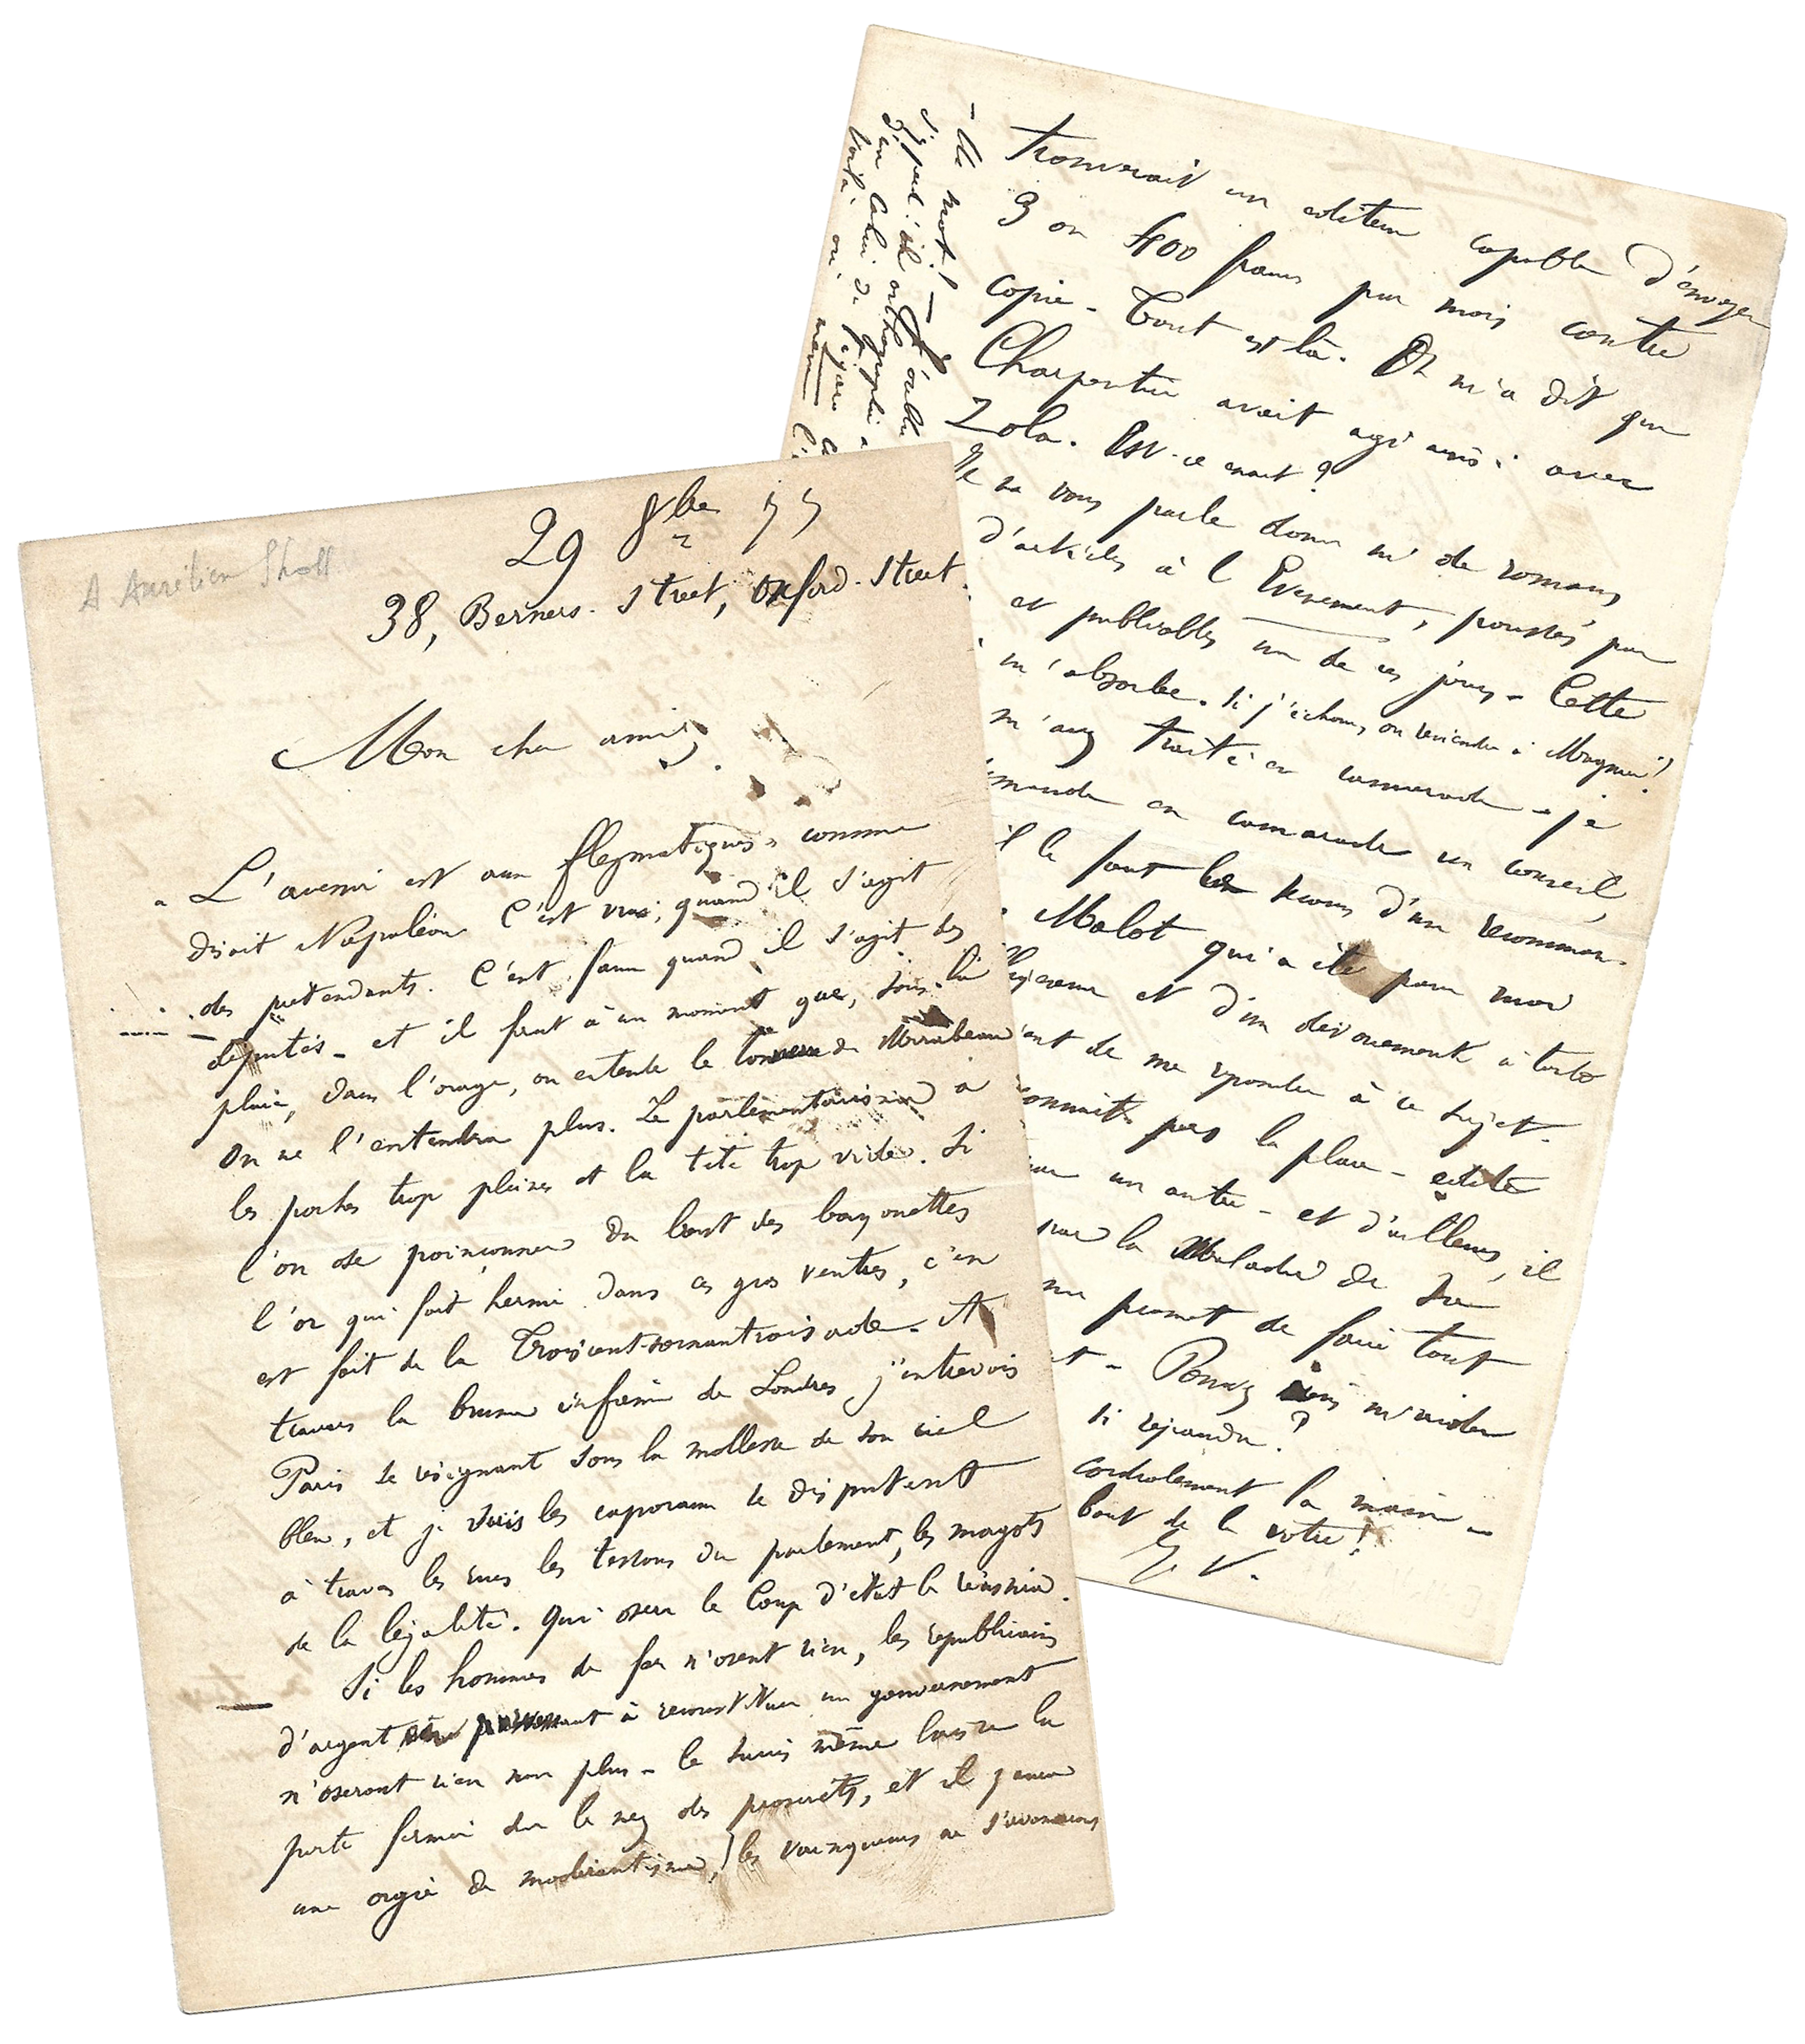 A Aurélien Sholl
29 8bre 77
38, Berners. Street, Oxford-Street.
Mon cher ami,
L'avenir est aux flegmatiques, comme
disait Napoléon. C'est vrai, quand il s'agit
des prétendants. C'est faux quand il s'agit des
députés – et il faut à un moment que, sous la
pluie, dans l'orage, on entende le tonnerre de Mirabeau
On ne l'entendra plus. Le parlementarisme a
les poches trop pleines et la tête trop vide. Si
l'on ose poinçonner du bout des bayonettes
l'or qui fait hernie dans ces gros ventres, c'en
est fait de la Troiscent-soixantroisade. A
travers la brume infâme de Londres j'entrevois
Paris se résignant sous la mollesse de son ciel
bleu, et je vois les caporaux se disputant
à travers les rues les testons du parlement, les magots
de la légalité. Qui osera le Coup d'état le réussira.
Si les hommes de fer n'osent rien, les républicains
d'argent à reconstituer un gouvernement
n'oseront rien non plus – le succès même laissera la
porte fermée sur le nez des proscrits, et il y aura
une orgie de modérantisme, les vainqueurs ne
– Un mot! –
trouverait un éditeur capable d'envoyer
3 ou 400 francs par mois contre
copie – Tout est là. On m'a dit que
Charpentier avait agi ainsi avec
Zola. Est-ce exact?
Je ne vous parle donc ni de romans
d'articles à l'Evenement, poussés par
et publiables un de ces jours – Cette
m'absorbe. Si j'échoue, on reviendra à Magnier!
m'avez traité en camarade – je
mande en camarade un conseil,
il le faut le secours d'une recomman-
Malot qui a été pour moi
et d'un dévouement à toute
ant de me répondre à ce sujet.
connaît pas la place – édité
un autre – et d'ailleurs, il
par la Maladie de sa
me promet de faire tout
– Pouvez vous m'aider
si répandu?
cordialement la main –
bout de la vôtre!
J. V.